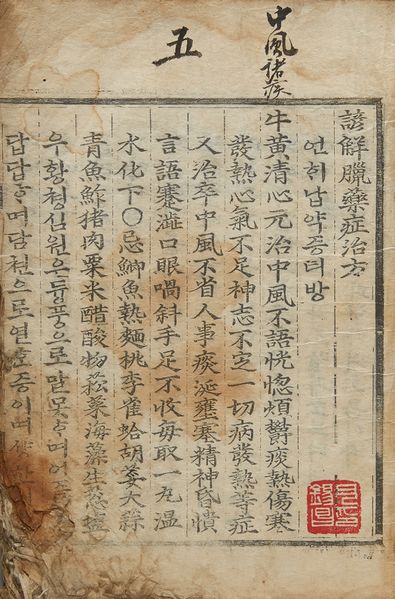 中風諸疾
五
諺解臘藥症治方
언ᄒᆡ납약증티방
牛黃清心元治中風不語恍惚煩鬱痰熱傷寒
發熱心氣不足神志不定一切病發熱等症
又治卒中風不省人事痰涎壅塞精神昏憒
言語蹇澁口眼喎斜手足不收每取一丸溫
水化下○忌鯽魚熱麵桃李雀蛤胡荽大蒜
青魚鮓猪肉粟米醋酸物菘菜海藻生葱
우황쳥심원은듕풍으로말못ᄒᆞ며어
답답ᄒᆞ며담쳔으로열ᄒᆞᆫ증이며